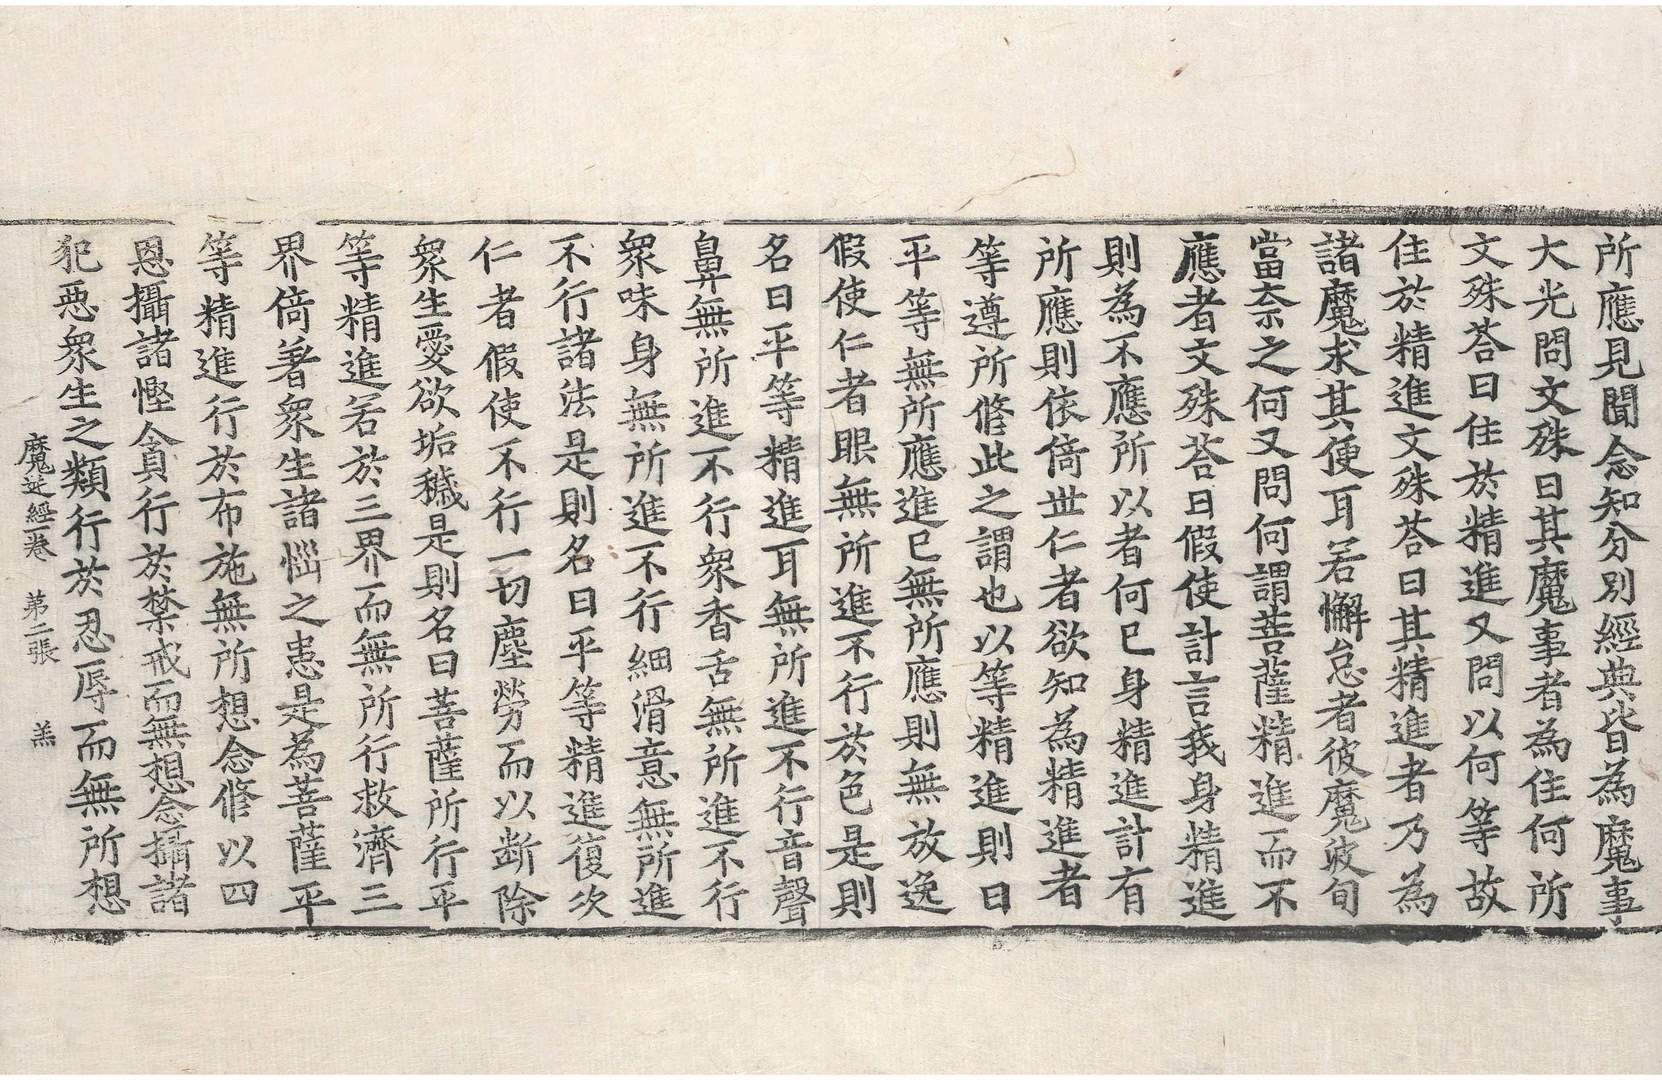 所應見聞念知分別經典皆為魔事
大光問文殊曰其魔事者為住何所
文殊荅曰住於精進又問以何等故
住於精進文殊荅曰其精進者乃為
諸魔求其便耳若懈怠者彼魔波旬
當奈之何又問何謂菩薩精進而不
應者文殊荅曰假使計言我身精進
則為不應所以者何已身精進計有
所應則依倚世仁者欲知為精進者
等遵所修此之謂也以等精進則曰
平等無所應進已無所應則無放逸
假使仁者眼無所進不行於色是則
名曰平等精進耳無所進不行音聲
鼻無所進不行衆香舌無所進不行
衆味身無所進不行細滑意無所進
不行諸法是則名曰平等精進復次
仁者假使不行一切塵勞而以断除
衆生愛欲垢穢是則名曰菩薩所行平
等精進若於三界而無所行救濟三
界倚著衆生諸惱之患是為菩薩平
等精進行於布施無所想念修以四
恩攝諸慳貪行於禁戒而無想念攝諸
犯惡衆生之類行於忍辱而無所想
魔逆經一卷 第二張 羔